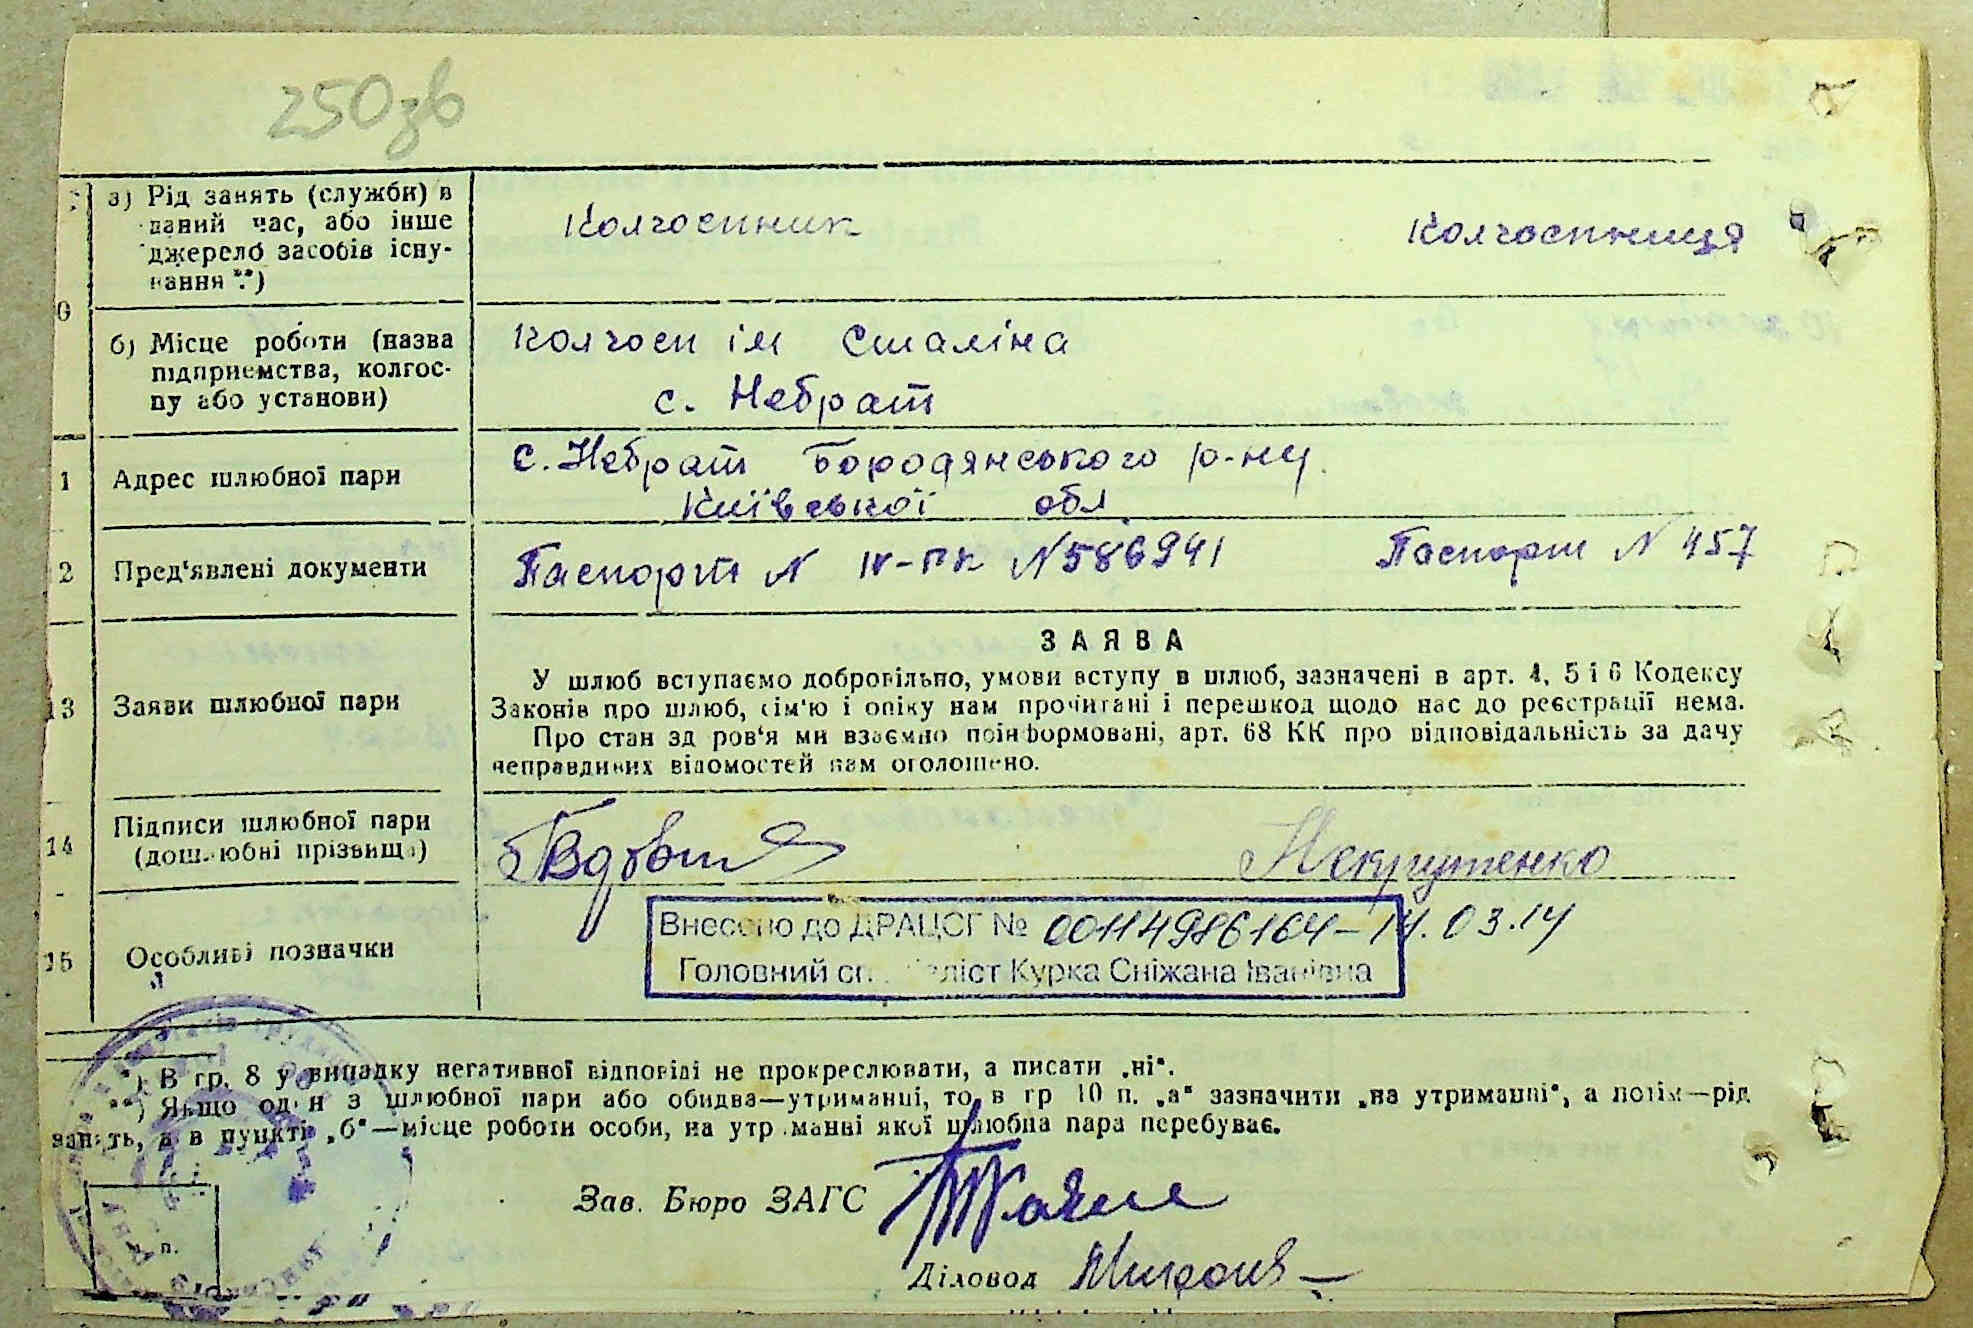 250зв
а) Рід занять (служби) в
даний час, або інше
джерело засобів існу-
вання **)
Колгоспник
Колгоспниця
б) Місце роботи (назва
підприємства, колгос-
пу або установи)
Колгосп ім Сталіна
с. Небрат
1
Адрес шлюбної пари
с. Небрат Бородянського р-ну.
Київської обл.
2
Пред'явлені документи
Паспорт N IV-ПК N 586941
Паспорт N 457
13
Заяви шлюбної пари
ЗАЯВА
У шлюб вступаємо добровільно, умови вступу в шлюб, зазначені в арт. 4, 5 і 6 Кодексу
Законів про шлюб, сім'ю і опіку нам прочитані і перешкод щодо нас до реєстрації нема.
Про стан здоров'я ми взаємно поінформовані, арт. 68 КК про відповідальність за дачу
неправдивих відомостей нам оголошено.
14
Підписи шлюбної пари
(дошлюбні прізвища)
Некрутенко
15
Особливі позначки
Внесено до ДРАЦСГ № 00114986164-14.03.14
Головний спеціаліст Курка Сніжана Іванівна
*) В гр. 8 у випадку негативної відповіді не прокреслювати, а писати „ні“.
**) Якщо один з шлюбної пари або обидва—утриманці, то в гр 10 п. „а“ зазначити „на утриманні“, а потім—рід
занять, а в пункті „б“—місце роботи особи, на утриманні якої шлюбна пара перебуває.
Зав. Бюро ЗАГС
Діловод
п.